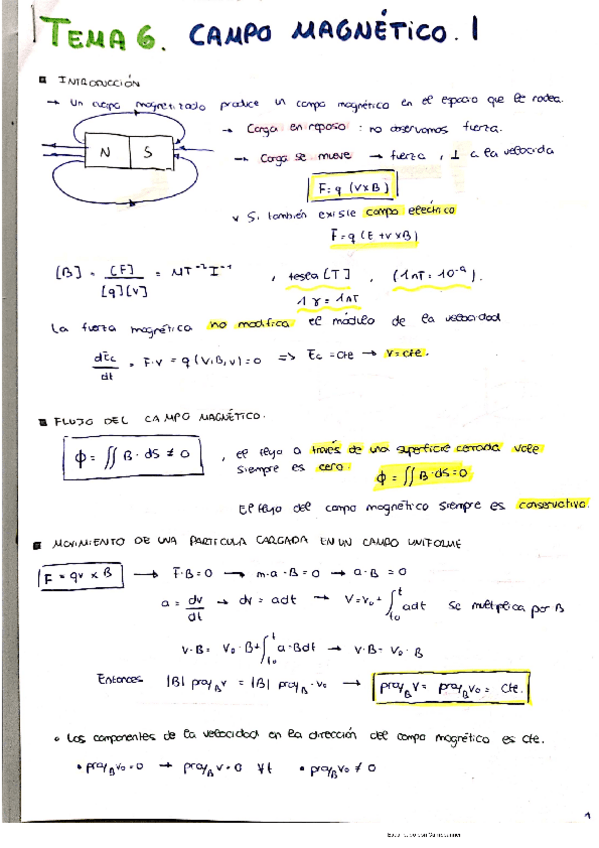 TEMA 6. CAMPO MAGNÉTICO. I
INTRODUCCIÓN
→ Un cuerpo magnetizado produce un campo magnético en el espacio que le rodea.
→ Carga en reposo : no observamos fuerza.
N S
→ Carga se mueve → fuerza , ⊥ a la velocidad
F = q (V×B)
Si también existe campo eléctrico
F = q (E + v×B)
[B] = [F] / [q][v] = MT⁻²I⁻¹ , tesla [T] , (1nT = 10⁻⁹).
1 γ = 1nT
La fuerza magnética no modifica el módulo de la velocidad
dEc/dt = F·v = q (v,B,v) = 0 => Ec = cte → v = cte.
FLUJO DEL CAMPO MAGNÉTICO.
ϕ = ∬ B · dS ≠ 0 , el flujo a través de una superficie cerrada vale
siempre es cero. ϕ = ∬ B · dS = 0
El flujo del campo magnético siempre es conservativo.
MOVIMIENTO DE UNA PARTICULA CARGADA EN UN CAMPO UNIFORME
F = qv × B → F·B = 0 → m·a·B = 0 → a·B = 0
a = dv/dt → dv = adt → V = V₀ + ∫ₜ₀ᵗ adt Se multiplica por B
V·B = V₀·B + ∫ₜ₀ᵗ a·Bdt → V·B = V₀·B
Entonces |B| proy_B v = |B| proy_B · v₀ → proy_B v = proy_B v₀ = cte.
• Las componentes de la velocidad en la dirección del campo magnético es cte.
• proy_B v₀ = 0 → proy_B v = 0 ∀t • proy_B v₀ ≠ 0
1